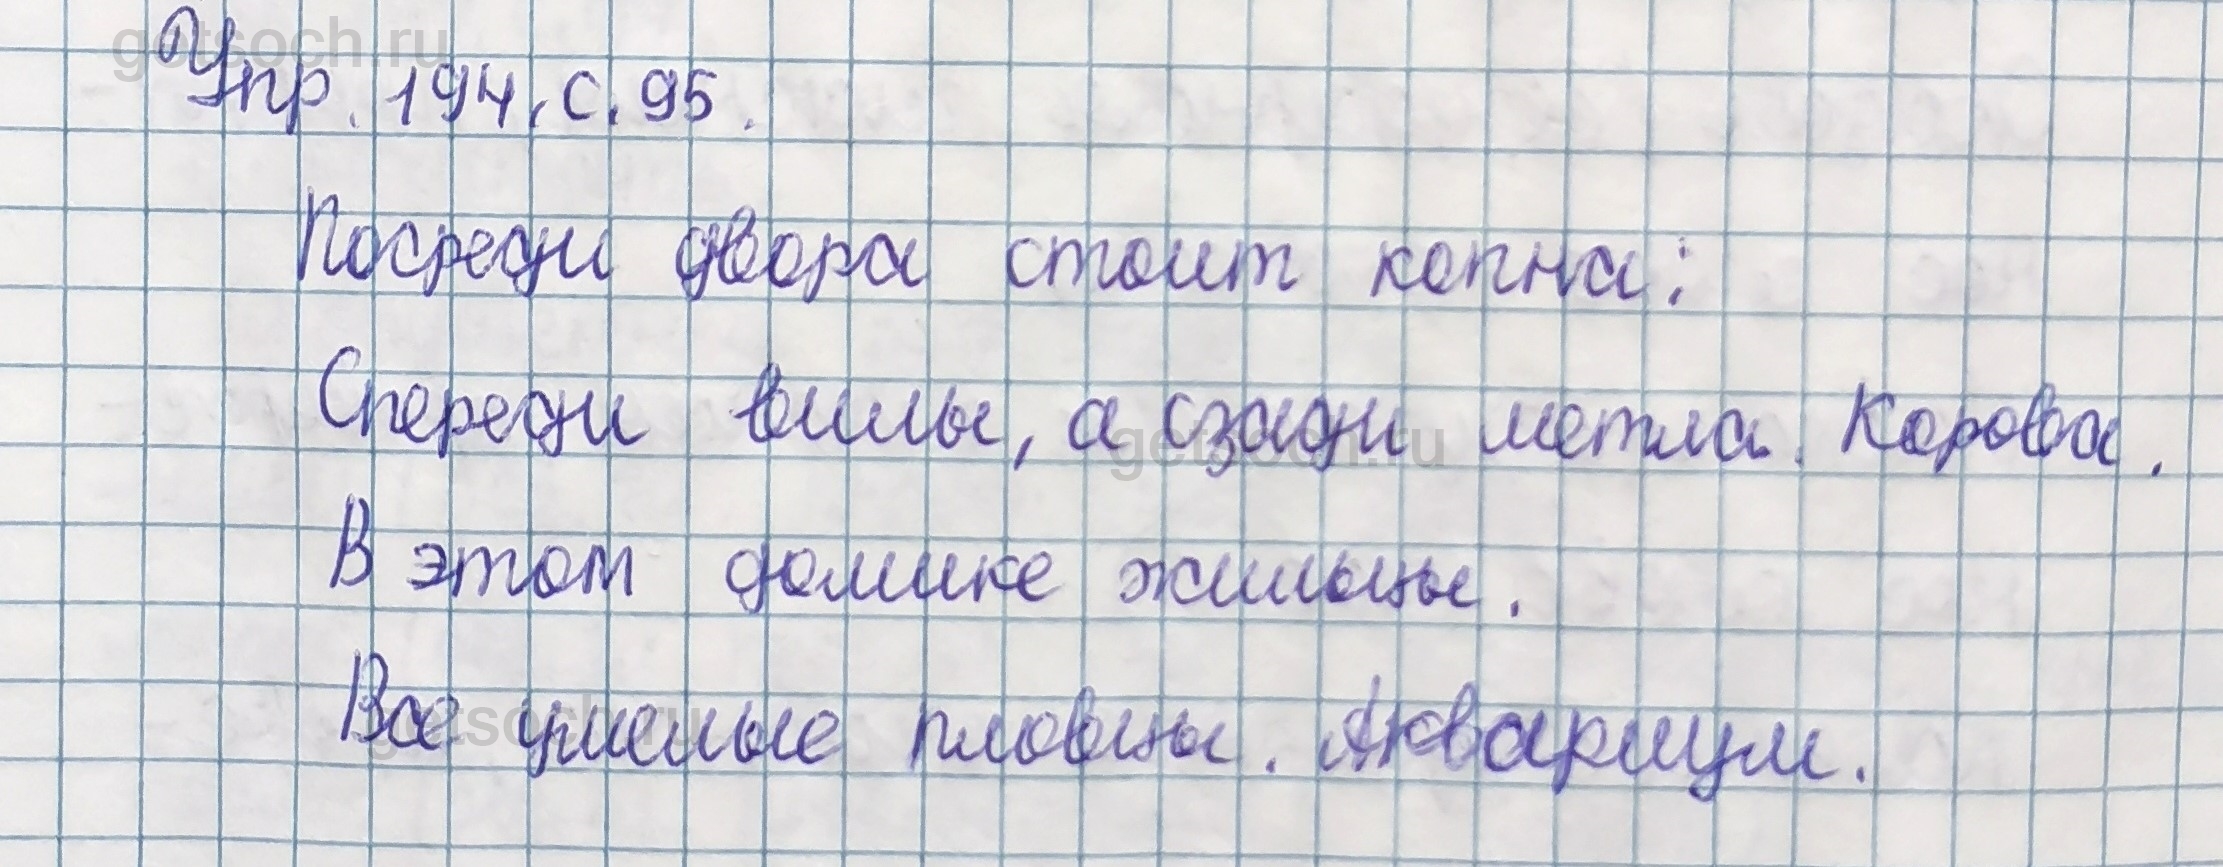 getsoch.ru
Упр. 194, с. 95.
Посреди двора стоит копна:
Спереди вилы, а сзади метла. Корова.
getsoch.ru
В этом домике жильцы.
Все умелые пловцы. Аквариум.
getsoch.ru